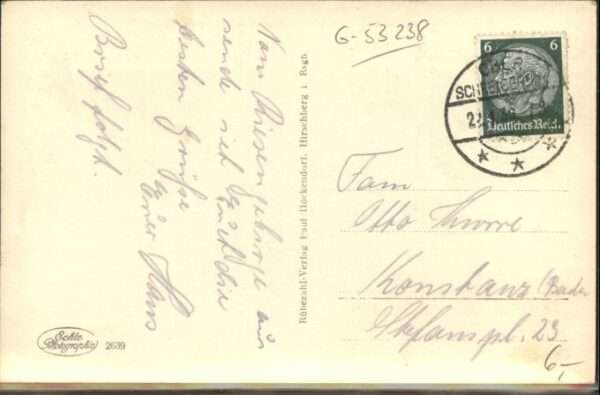 G-53238
6 6
Deutsches Reich
Vom Riesengebirge aus
sende ich Euch die
besten Grüße
Euer Hans
Brief folgt.
Rübezahl-Verlag Paul Höckendorf, Hirschberg i. Rsgb.
Fam
Otto
Konstanz (Baden
Stefanspl. 23
Echte
Photographie
2639
6,-